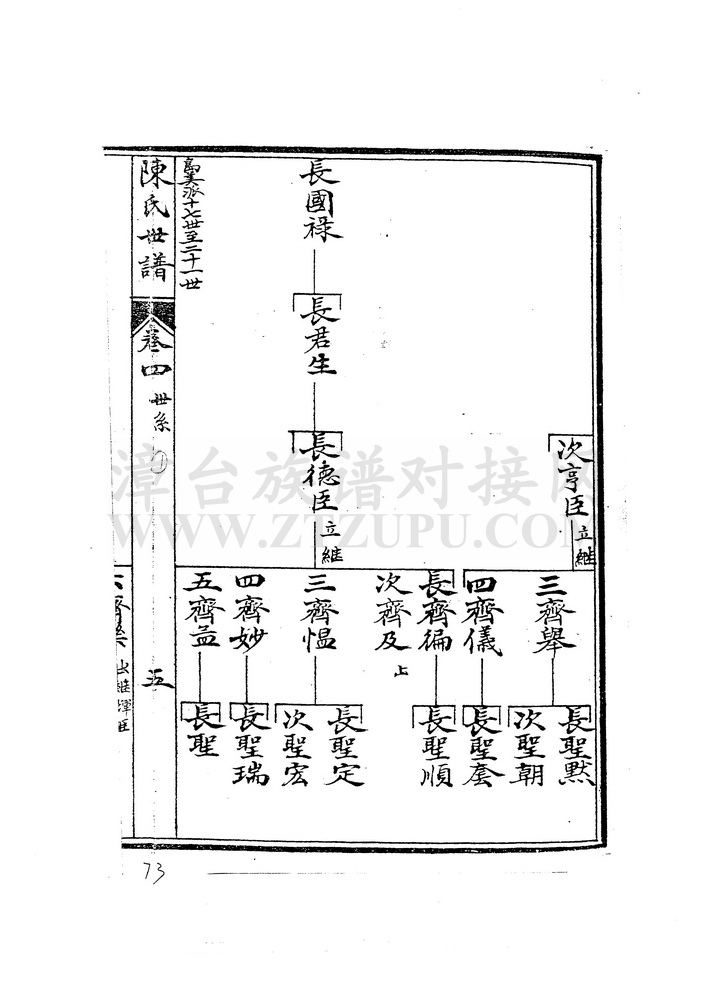 次亨臣 立繼
三齊舉
四齊儀
長聖默
次聖朝
長聖套
長國祿
長君生
長德臣 立繼
長齊徧
次齊及 上
三齊愠
四齊妙
五齊益
長聖順
長聖定
次聖宏
長聖瑞
長聖
派十七世至二十一世
陳氏世譜
卷四 世系
五
六齊樂 出繼
73
漳台族谱对接网
WWW.ZTZUPU.COM